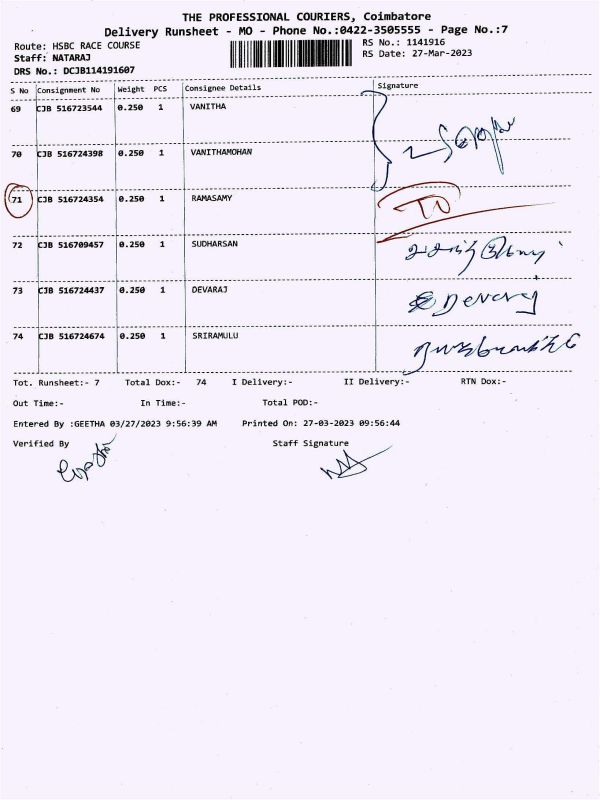 THE PROFESSIONAL COURIERS, Coimbatore
Delivery Runsheet - MO - Phone No.:0422-3505555 - Page No.:7
Route: HSBC RACE COURSE
RS No.: 1141916
Staff: NATARAJ
RS Date: 27-Mar-2023
DRS No.: DCJB114191607
S No Consignment No Weight PCS Consignee Details Signature
69 CJB 516723544 0.250 1 VANITHA
70 CJB 516724398 0.250 1 VANITHAMOHAN
71 CJB 516724354 0.250 1 RAMASAMY
72 CJB 516709457 0.250 1 SUDHARSAN
73 CJB 516724437 0.250 1 DEVARAJ Devaraj
74 CJB 516724674 0.250 1 SRIRAMULU
Tot. Runsheet:- 7 Total Dox:- 74 I Delivery:- II Delivery:- RTN Dox:-
Out Time:- In Time:- Total POD:-
Entered By :GEETHA 03/27/2023 9:56:39 AM Printed On: 27-03-2023 09:56:44
Verified By Staff Signature